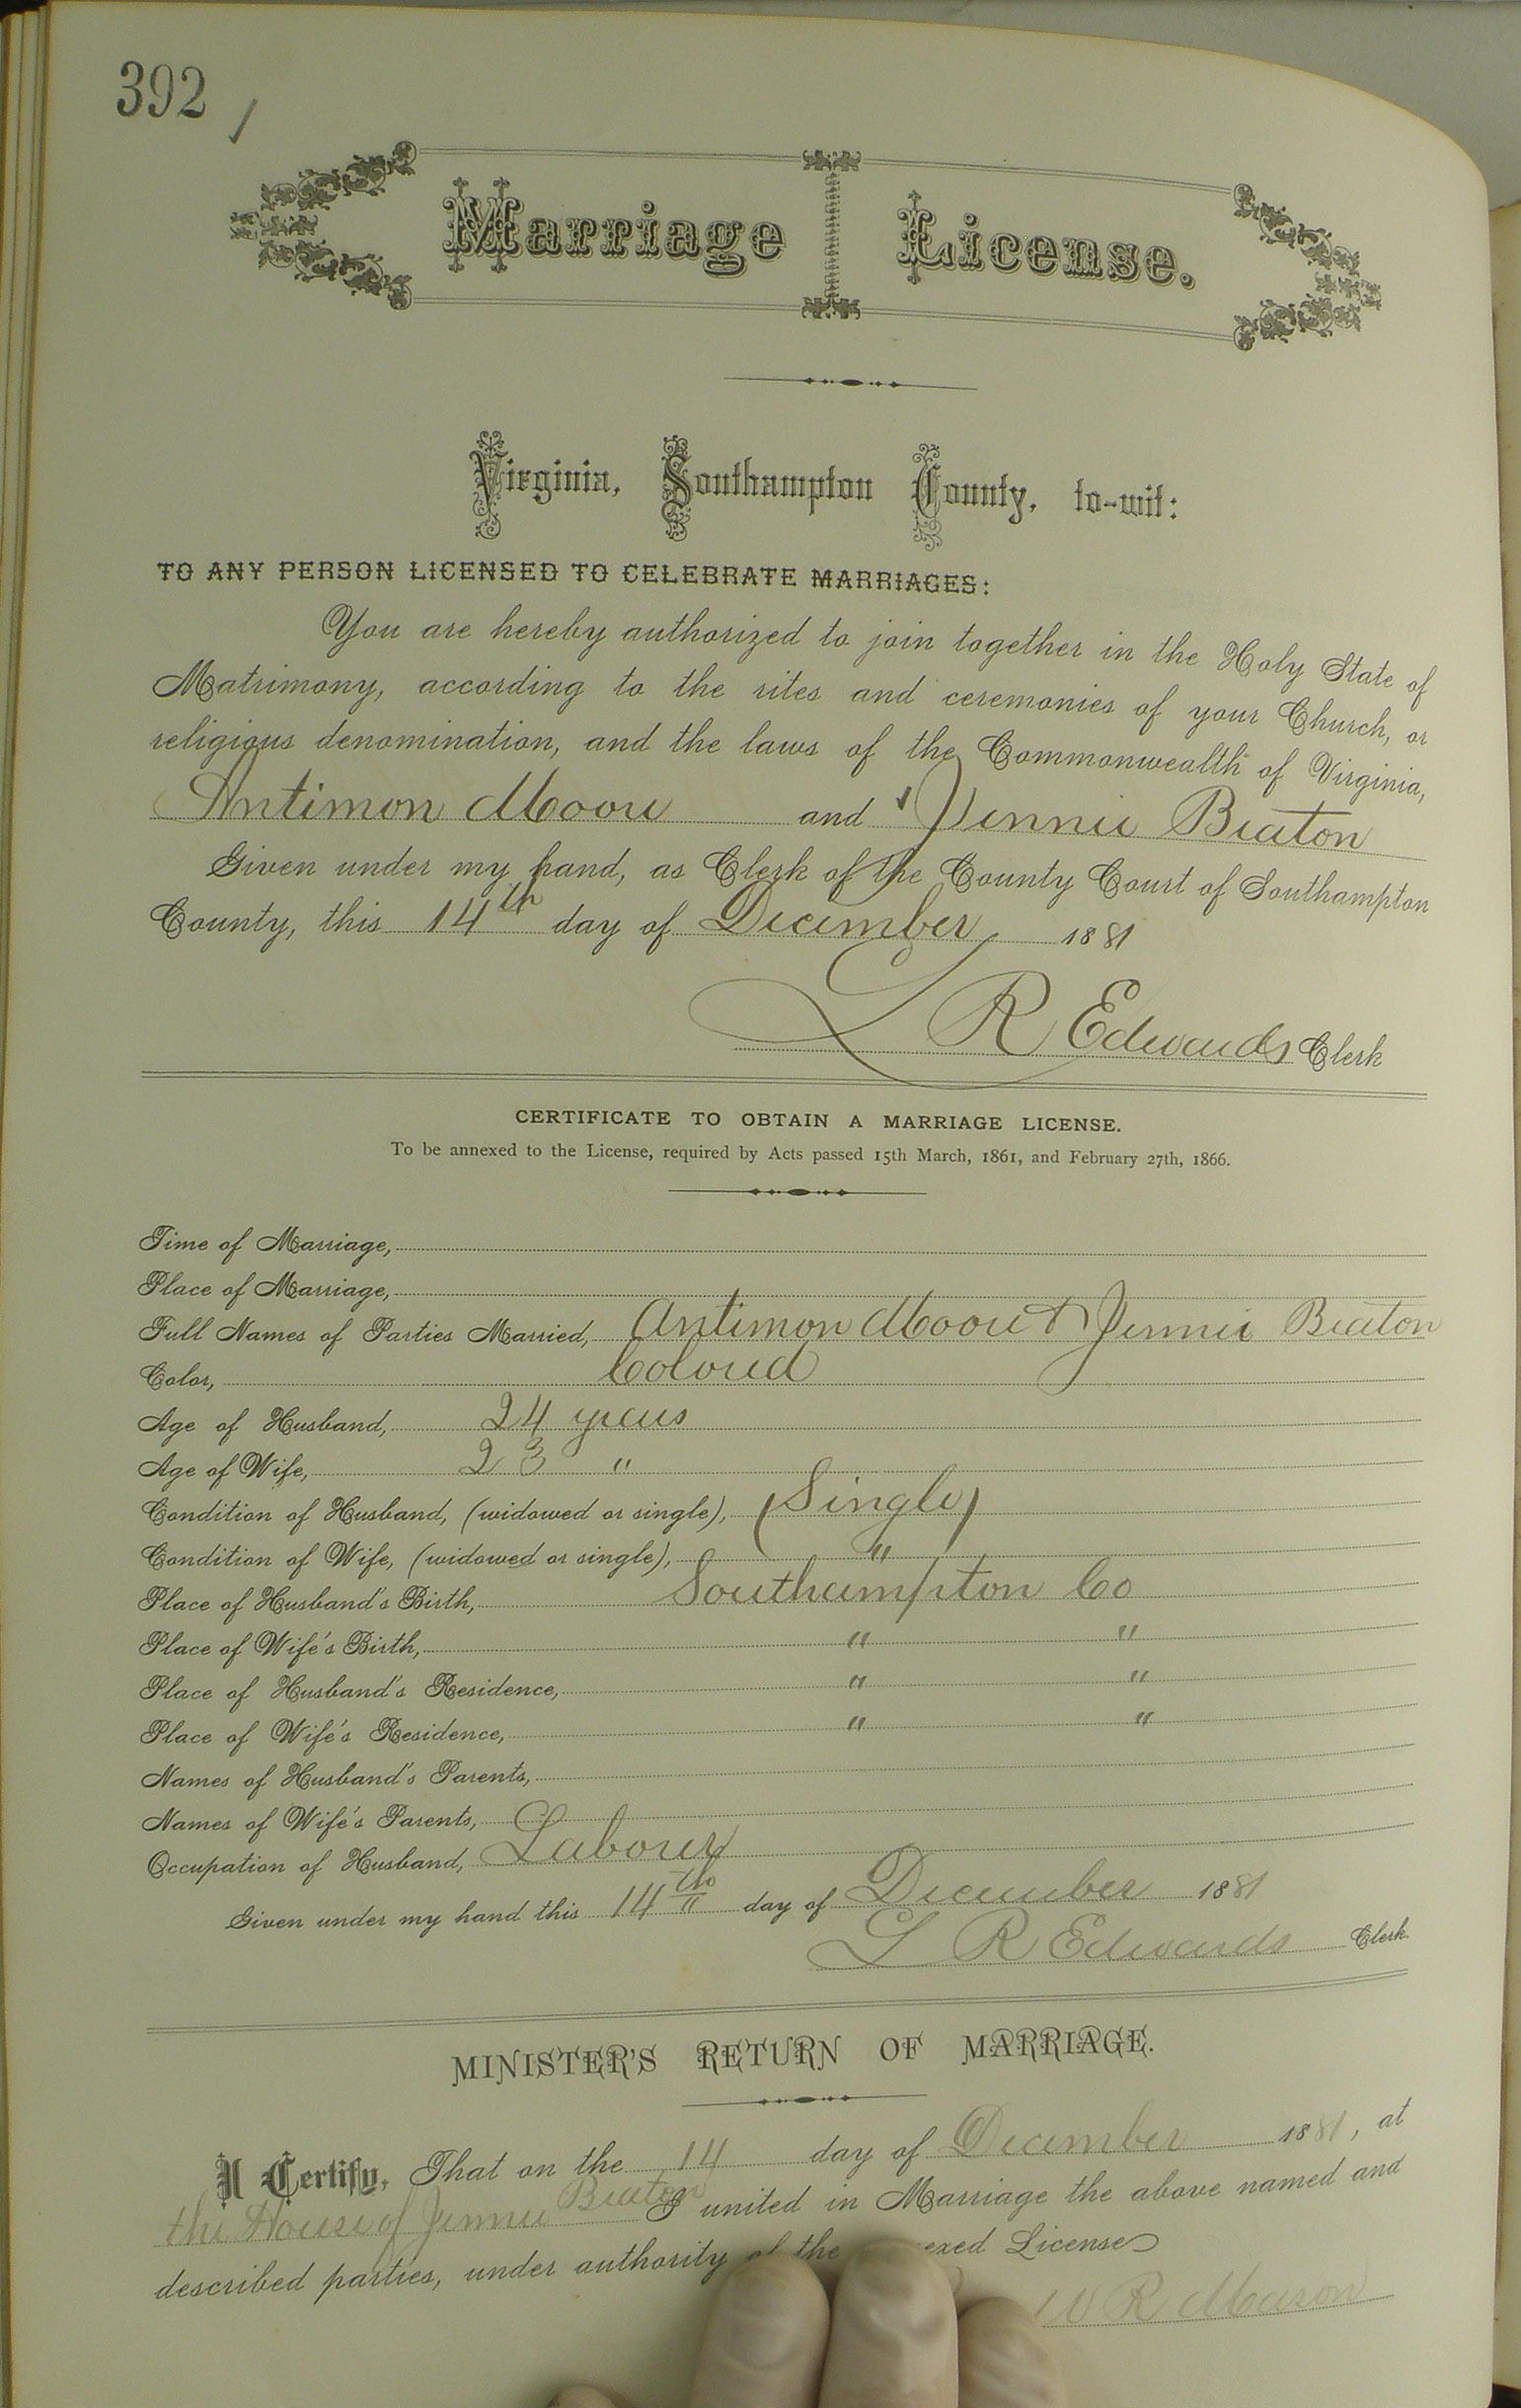 392
Marriage License.
Virginia, Southampton County, to-wit:
TO ANY PERSON LICENSED TO CELEBRATE MARRIAGES:
You are hereby authorized to join together in the Holy State of
Matrimony, according to the rites and ceremonies of your Church, or
religious denomination, and the laws of the Commonwealth of Virginia,
Antimon Moore and Jennie Beaton
Given under my hand, as Clerk of the County Court of Southampton
County, this 14th day of December 1881
L R Edwards Clerk
CERTIFICATE TO OBTAIN A MARRIAGE LICENSE.
To be annexed to the License, required by Acts passed 15th March, 1861, and February 27th, 1866.
Time of Marriage,
Place of Marriage,
Full Names of Parties Married, Antimon Moore & Jennie Beaton
Color, Colored
Age of Husband, 24 years
Age of Wife, 23 "
Condition of Husband, (widowed or single), (Single)
Condition of Wife, (widowed or single), "
Place of Husband's Birth, Southampton Co
Place of Wife's Birth, " "
Place of Husband's Residence, " "
Place of Wife's Residence, " "
Names of Husband's Parents,
Names of Wife's Parents,
Occupation of Husband, Laborer
Given under my hand this 14th day of December 1881
L R Edwards Clerk.
MINISTER'S RETURN OF MARRIAGE.
I Certify, That on the 14 day of December 1881, at
the House of Jennie Beaton I united in Marriage the above named and
described parties, under authority of the exed License
W R Mason